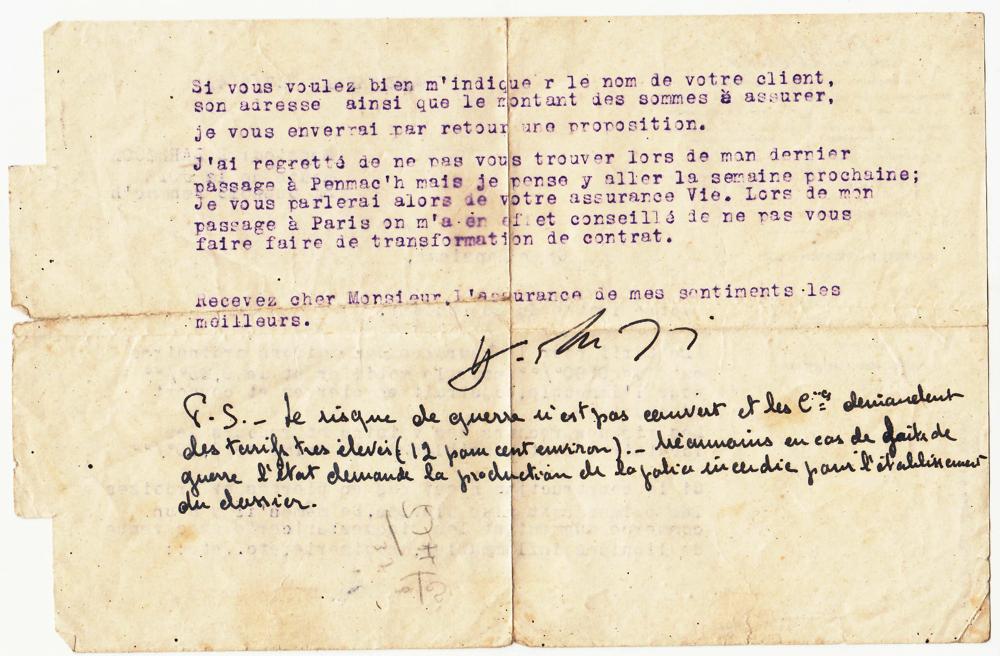 Si vous voulez bien m'indique r le nom de votre client,
son adresse ainsi que le montant des sommes à assurer,
je vous enverrai par retour une proposition.
J'ai regretté de ne pas vous trouver lors de mon dernier
passage à Penmac'h mais je pense y aller la semaine prochaine;
Je vous parlerai alors de votre assurance Vie. Lors de mon
passage à Paris on m'a en effet conseillé de ne pas vous
faire faire de transformation de contrat.
Recevez cher Monsieur,l'assurance de mes sentiments les
meilleurs.
P.S._ Le risque de guerre n'est pas couvert et les Cies demandent
des tarifs tres élevés (12 pour cent environ)._ Néanmoins en cas de faits de
guerre l'état demande la production de la police incendie pour l'établissement
du dossier.